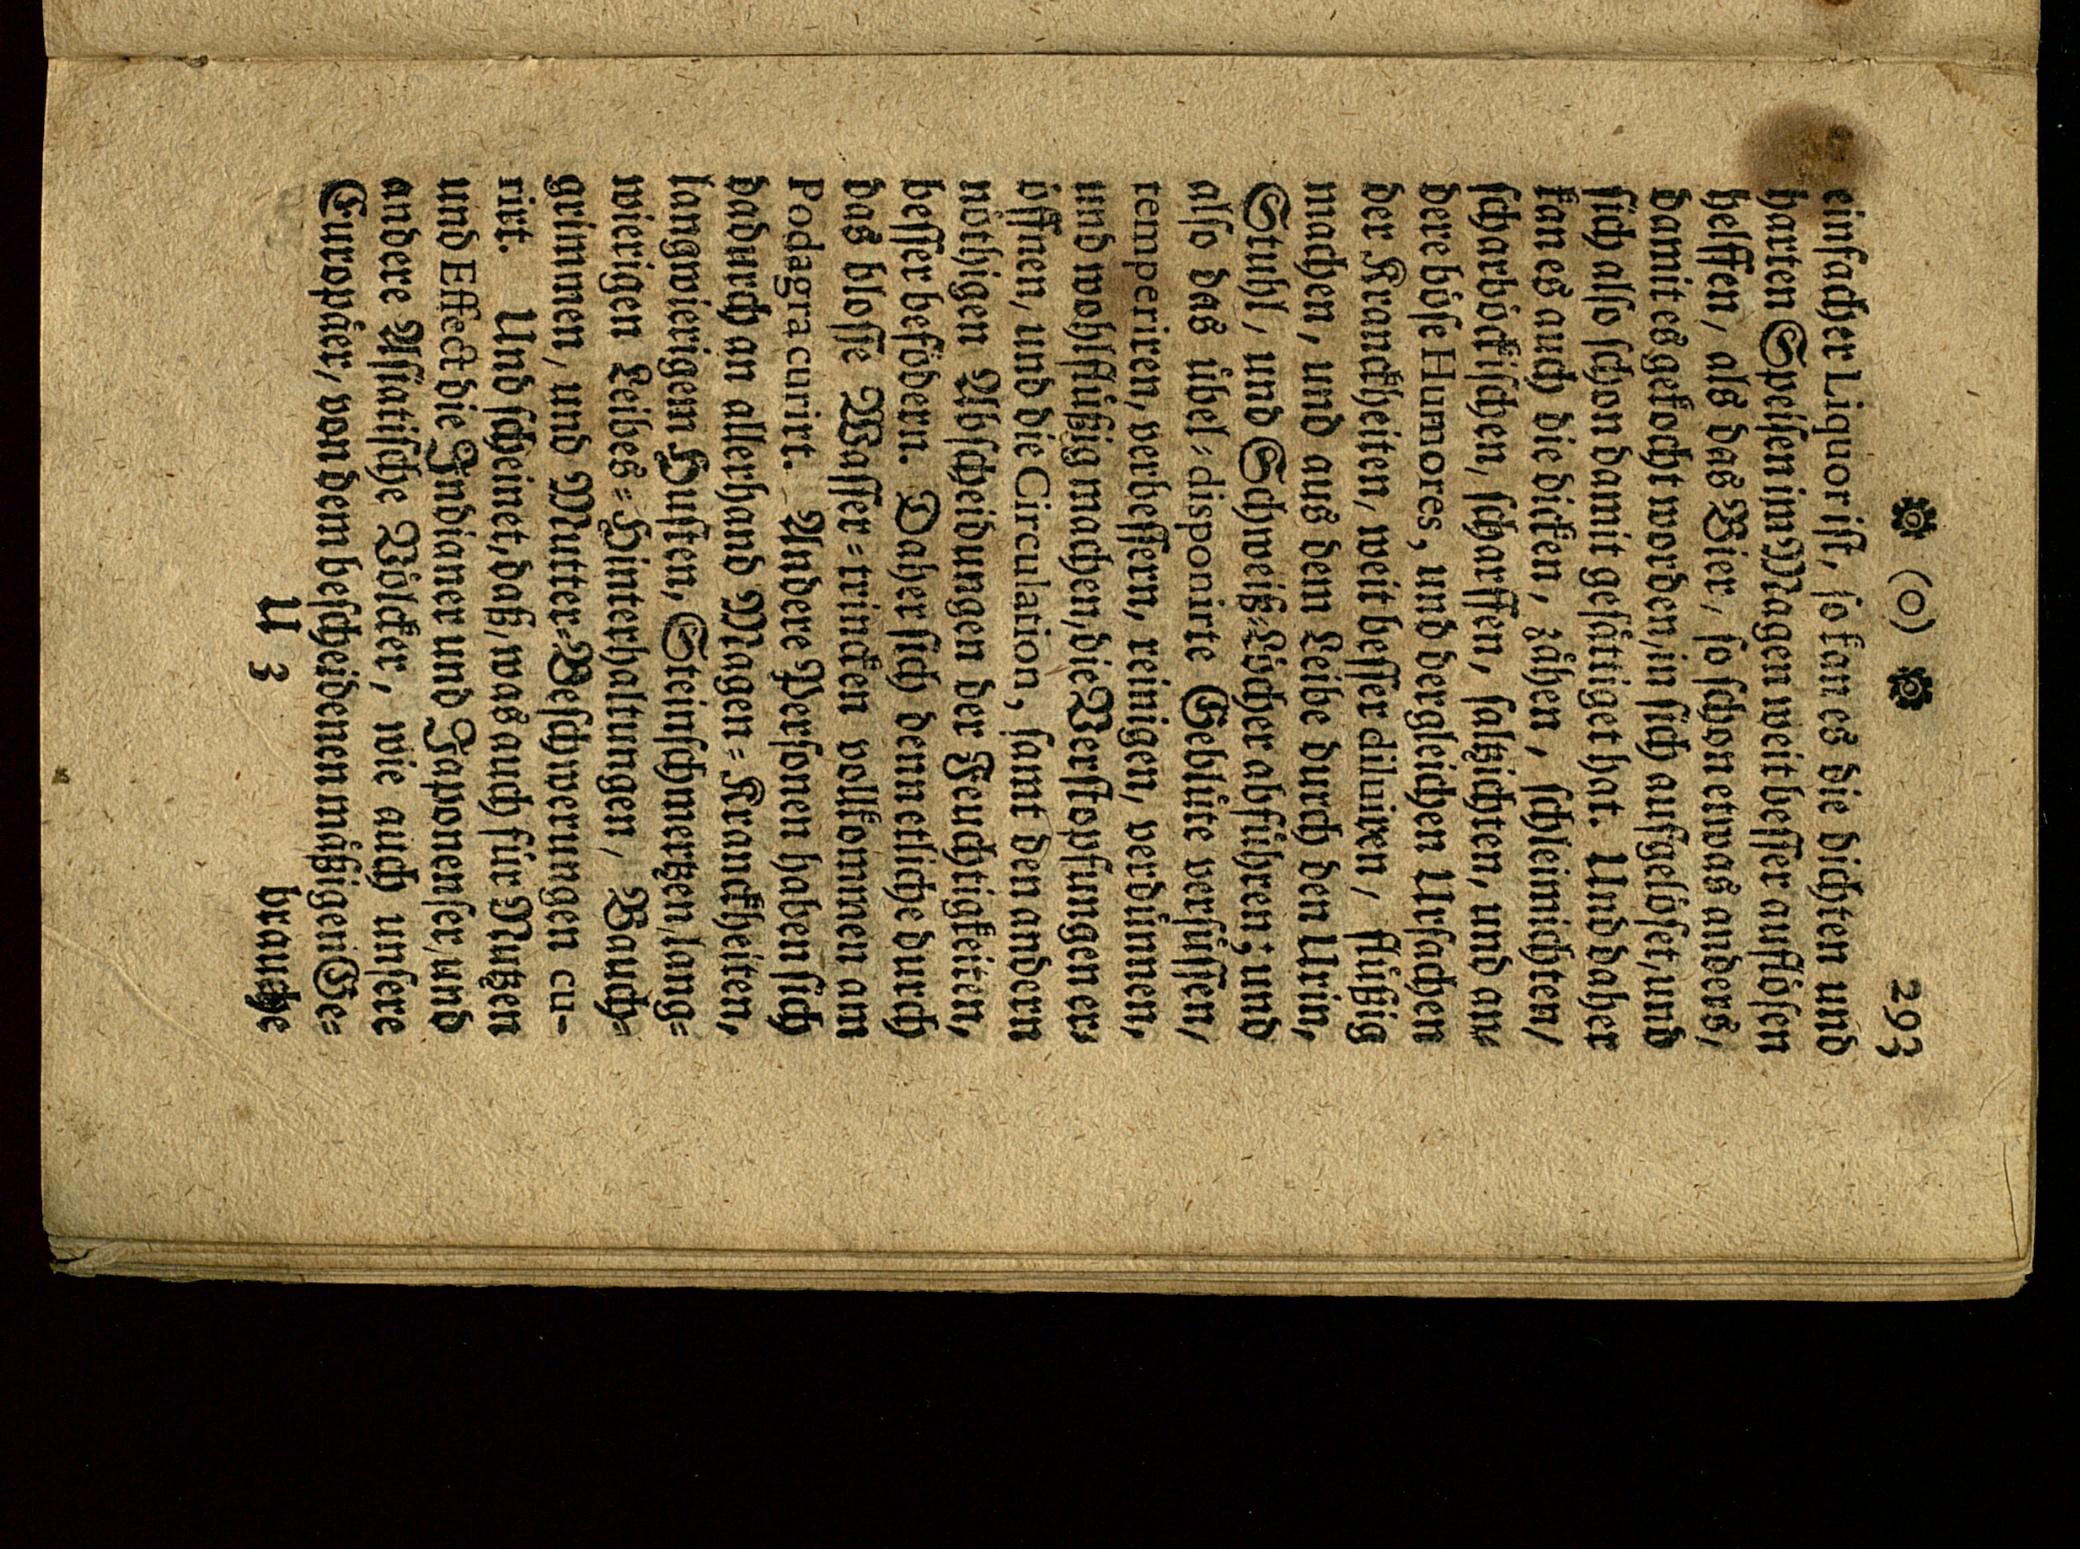 (o) 293
einfacher Liquor ist, so kan es die dichten und
harten Speisen im Magen weit besser auflösen
helffen, als das Bier, so schon etwas anders,
damit es gekocht worden, in sich aufgelöset, und
sich also schon damit gesättiget hat. Und daher
kan es auch die dicken, zähen, schleimichten,
scharböckischen, scharffen, saltzichten, und an-
dere böse Humores, und dergleichen Ursachen
der Kranckheiten, weit besser diluiren, flüßig
machen, und aus dem Leibe durch den Urin,
Stuhl, und Schweiß-Löcher abführen; und
also das übel-disponirte Geblüte versüssen,
temperiren, verbessern, reinigen, verdünnen,
und wohlflüßig machen, die Verstopfungen er-
öffnen, und die Circulation, samt den andern
nöthigen Abscheidungen der Feuchtigkeiten,
besser befödern. Daher sich denn etliche durch
das blosse Wasser-trincken vollkommen am
Podagra curirt. Andere Personen haben sich
dadurch an allerhand Magen-Kranckheiten,
langwierigem Husten, Steinschmertzen, lang-
wierigen Leibes-Hinterhaltungen, Bauch-
grimmen, und Mutter-Beschwerungen cu-
rirt. Und scheinet, daß, was auch für Nutzen
und Effect die Indianer und Japonenser, und
andere Asiatische Völcker, wie auch unsere
Europäer, von dem bescheidenen mäßigen Ge-
U 3 brauche